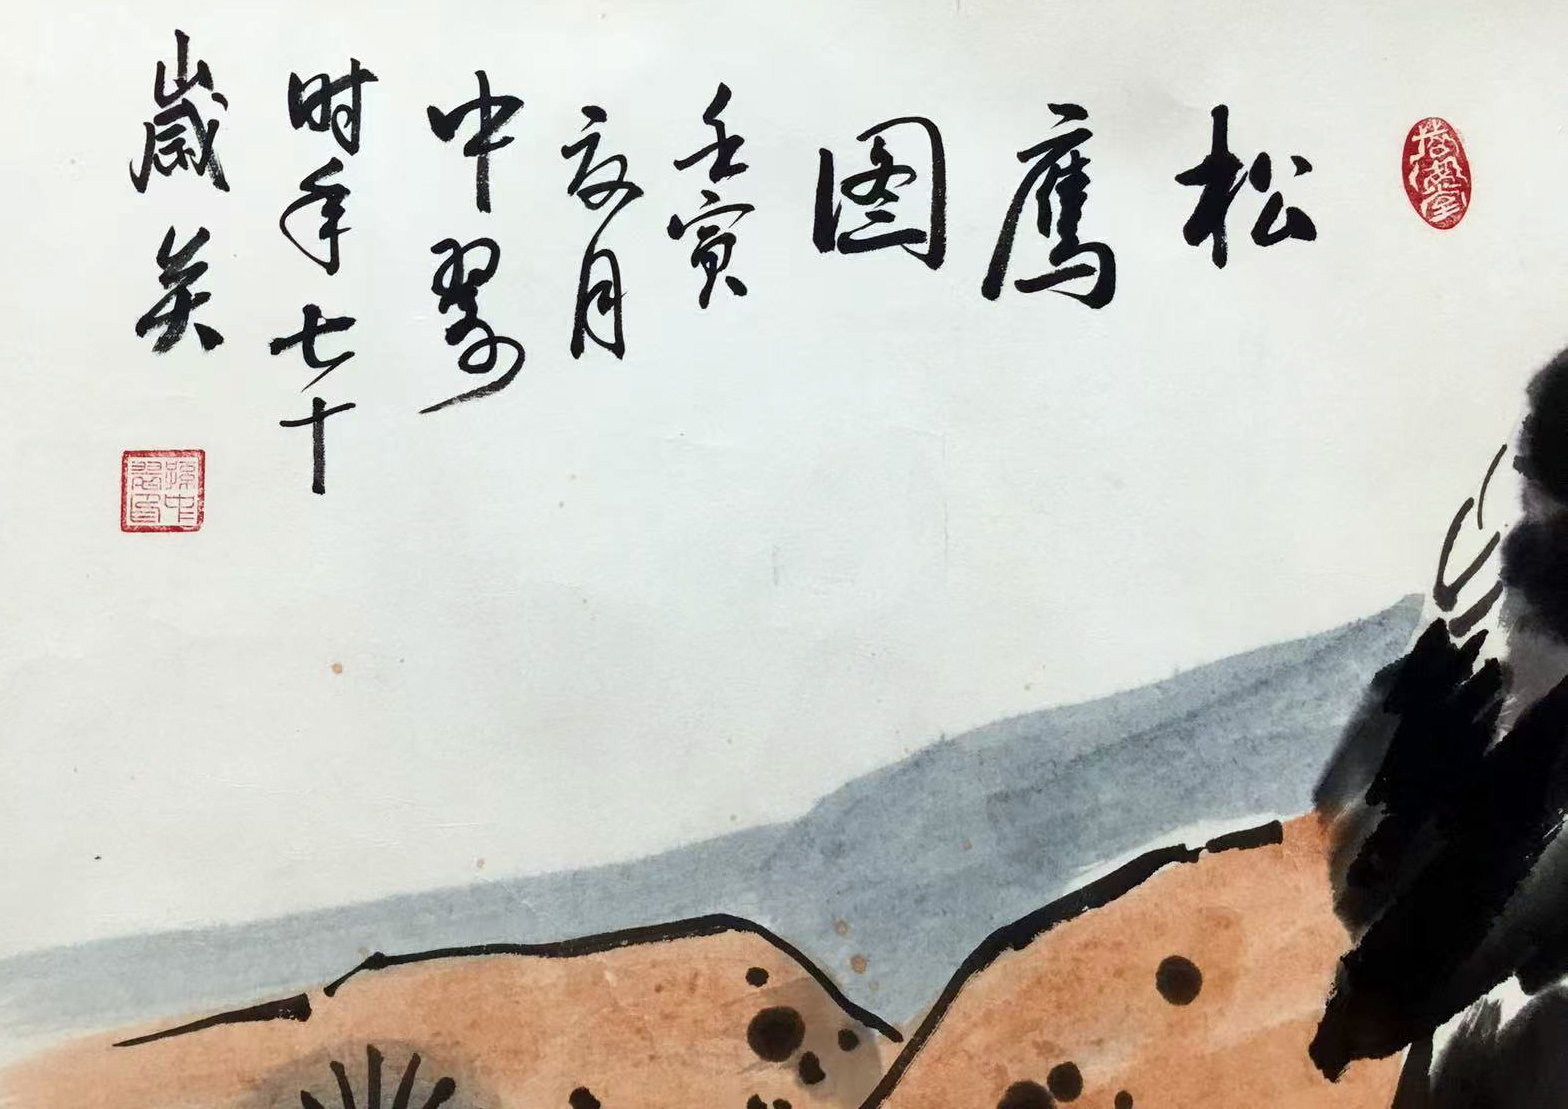 松
鹰
图
壬寅
夏月
中
时年七十
歲矣